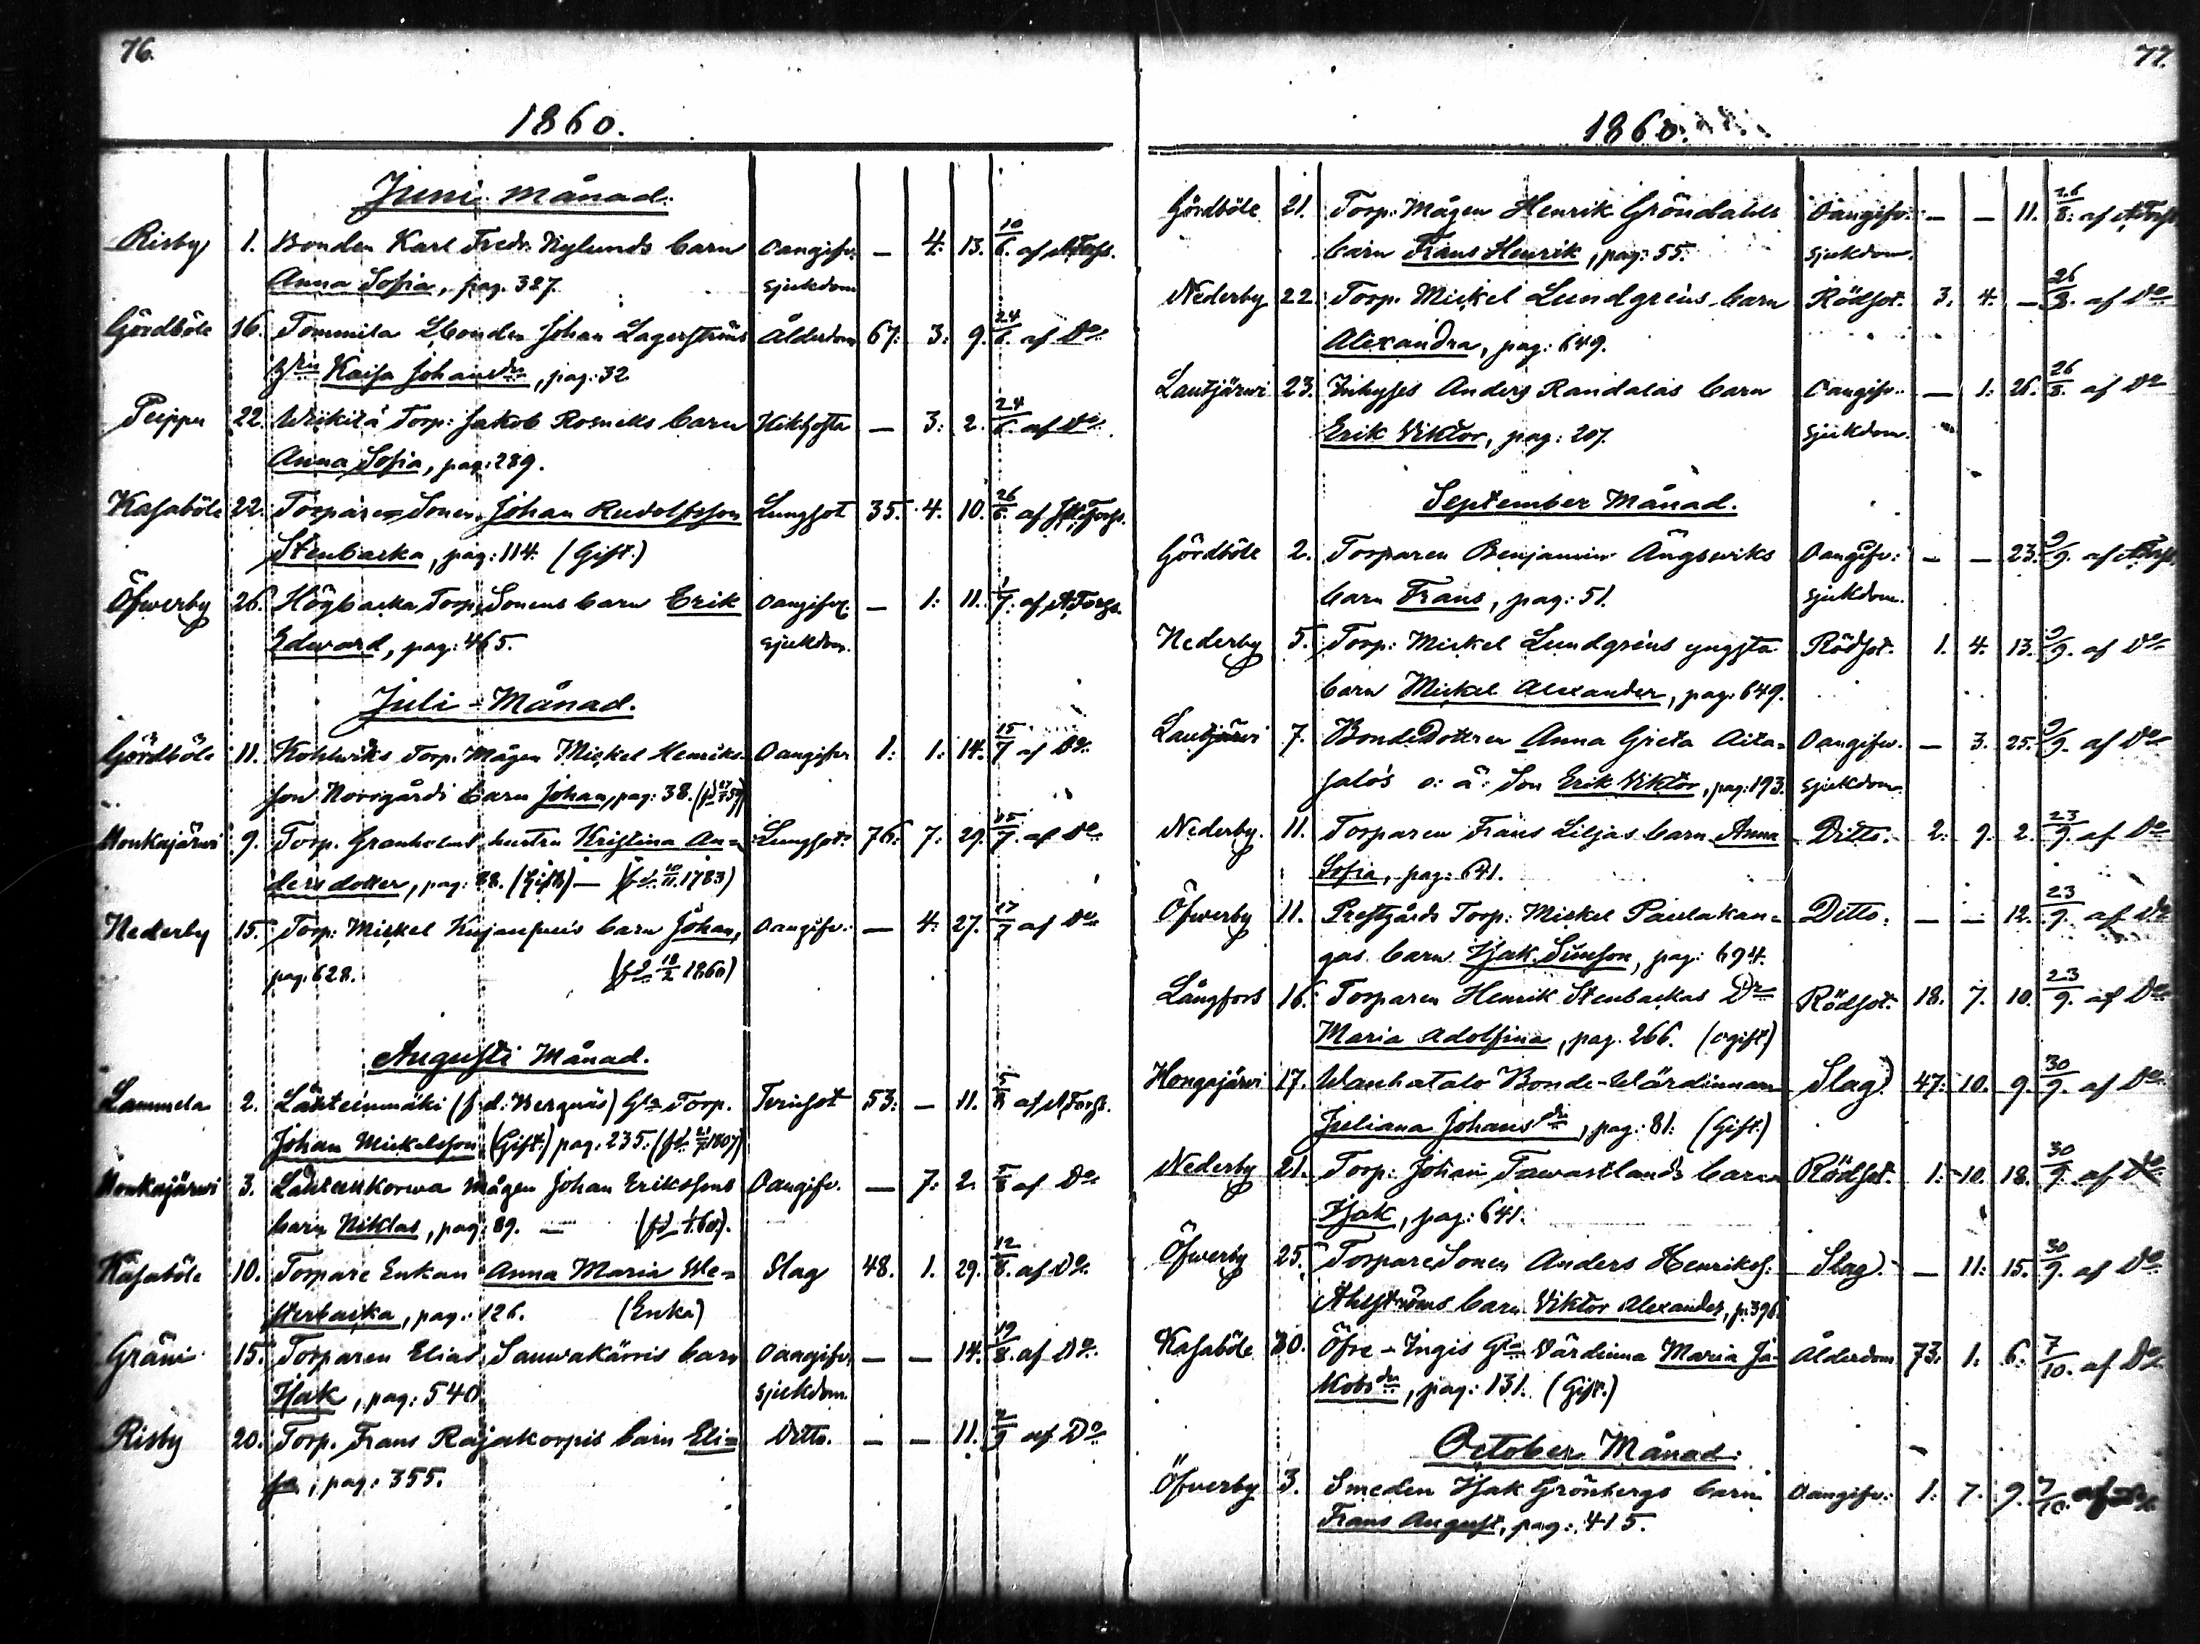 76.
1860.
Juni månad.
Risby 1. Bonden Karl Fredr. Nylunds barn Oangifv. — 4. 13. 10/6. af A Forss.
Anna Sofia, pag. 327. sjukdom
Gördböle 16. Tommila Bonden Johan Lagerströms Ålderdom 67: 3: 9. 24/6. af Do
Kaisa Johansdr, pag: 32
Peippu 22. Torp: Jakob Rosnells barn Kikhosta — 3: 2. 24/6. af Do
Anna Sofia, pag: 289.
Kasaböle 22. Torpare Sonen Johan Rudolfsson Lungsot 35. 4. 10. 26/6. af Forss.
Stenbacka, pag: 114. (Gift.)
Öfwerby 26. Högbacka Torp. Sonens barn Erik Oangifv. — 1: 11. 1/7. af A Forss.
Edward, pag: 465. sjukdom.
Juli - Månad.
Gördböle 11. Torp. Mågen Mickel Henriks- Oangifv 1: 1: 14. 15/7 af Do
son Norrgårds barn Johan, pag: 38.
Honkajärwi 9. Torp. Granholms hustru Kristina An= Lungsot. 76. 7: 29. 15/7. af Do
dersdotter, pag: 88. (Gift) — (fd. 1783)
Nederby 15. Torp: Mickel barn Johan, Oangifv. — 4: 27. af Do
pag. 628. (fd 18/2 1860)
Augusti Månad.
Lammela 2. Lähteenmäki (f.d. Bergnäs) Gla Torp. 53: — 11. 5/8 af A Forss.
Johan Mickelsson (Gift.) pag. 235. (fd 1807)
Honkajärwi 3. Lähteenkorwa Mågen Johan Erikssons Oangifv. — 7: 2. 5/8 af Do
barn Niklas, pag: 89. —
Kasaböle 10. Torpare Enkan Anna Maria We= Slag 48. 1. 29. 12/8. af Do
sterbacka, pag: 126. (Enka)
Gråni 15. Torparen Elias Sauwakärris barn Oangifv — — 14. 19/8. af Do
Isak, pag: 540 sjukdom.
Risby 20. Torp. Frans Rajakorpis barn Eli= Ditto. — — 11. 2/9 af Do
sa, pag: 355.
77.
1860.
Gördböle 21. Torp: Mågen Henrik Gröndahls Oangifv. — — 11. 26/8. af A Forss
barn Frans Henrik, pag: 55. sjukdom.
Nederby 22. Torp. Mickel Lundgréns barn Rödsot. 3. 4. — 26/8. af Do
Alexandra, pag: 649.
Lautjärwi 23. Inhyses Anders Randalas barn Oangifv. — 1: 26. 26/8. af Do
Erik Viktor, pag: 207. sjukdom.
September Månad.
Gördböle 2. Torparen Benjamin Ängswiks Oangifv: — — 23. 9/9. af A Forss
barn Frans, pag: 51. sjukdom.
Nederby 5. Torp: Mickel Lundgréns yngsta Rödsot. 1. 4. 13. 9/9. af Do
barn Mickel Alexander, pag: 649.
Lautjärwi 7. BondeDottren Anna Greta Aita- Oangifv. — 3. 25. 9/9. af Do
salos o: ä: Son Erik Viktor, pag: 193. sjukdom
Nederby. 11. Torparen Frans Liljas barn Anna Ditto. 2: 9. 2. 23/9. af Do
Sofia, pag: 641.
Öfwerby 11. Prestgårds Torp: Mickel Paulakan= Ditto. — — 12. 23/9. af Do
gas barn Isak Simson, pag: 694.
Långfors 16. Torparen Henrik Stenbackas Dr Rödsot. 18. 7. 10. 23/9. af Do
Maria Adolfina, pag. 266. (ogift)
Hongajärwi 17. Wanhatalo Bonde-Wärdinnan Slag 47: 10. 9. 30/9. af Do
Juliana Johansdr, pag: 81: (Gift.)
Nederby 21. Torp: Johan Tawastlands barn Rödsot. 1: 10. 18. 30/9. af Do
Isak, pag: 641.
Öfwerby 25. TorpareSonen Anders Henrikss. Slag. — 11: 15. 30/9. af Do
Ahlströms barn Viktor Alexander, p: 396
Kasaböle 30. Öfre - Ingis Gla Värdinna Maria Ja- Ålderdom 73. 1. 6. 7/10. af Do
kobsdr, pag: 131. (Gift.)
October Månad.
Öfwerby 3. Smeden Isak Grönbergs barn Oangifv: 1: 7. 9. 7/10. af
Frans August, pag: 415.